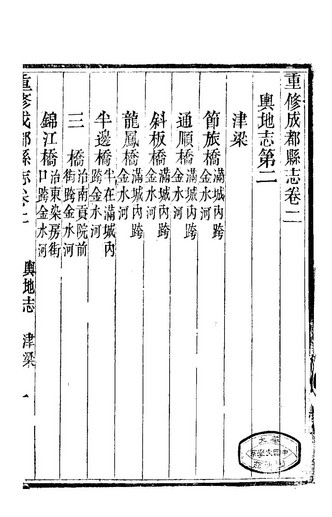 重修成都縣志卷二
輿地志第二
津梁
節旅橋 滿城內跨金水河
通順橋 滿城內跨金水河
斜板橋 滿城內跨金水河
龍鳳橋 滿城內跨金水河
半邊橋 半在滿城內跨金水河
三橋 治南貢院前街跨金水河
錦江橋 治東染房街口跨金水河
重修成都縣志卷二 輿地志 津梁 一